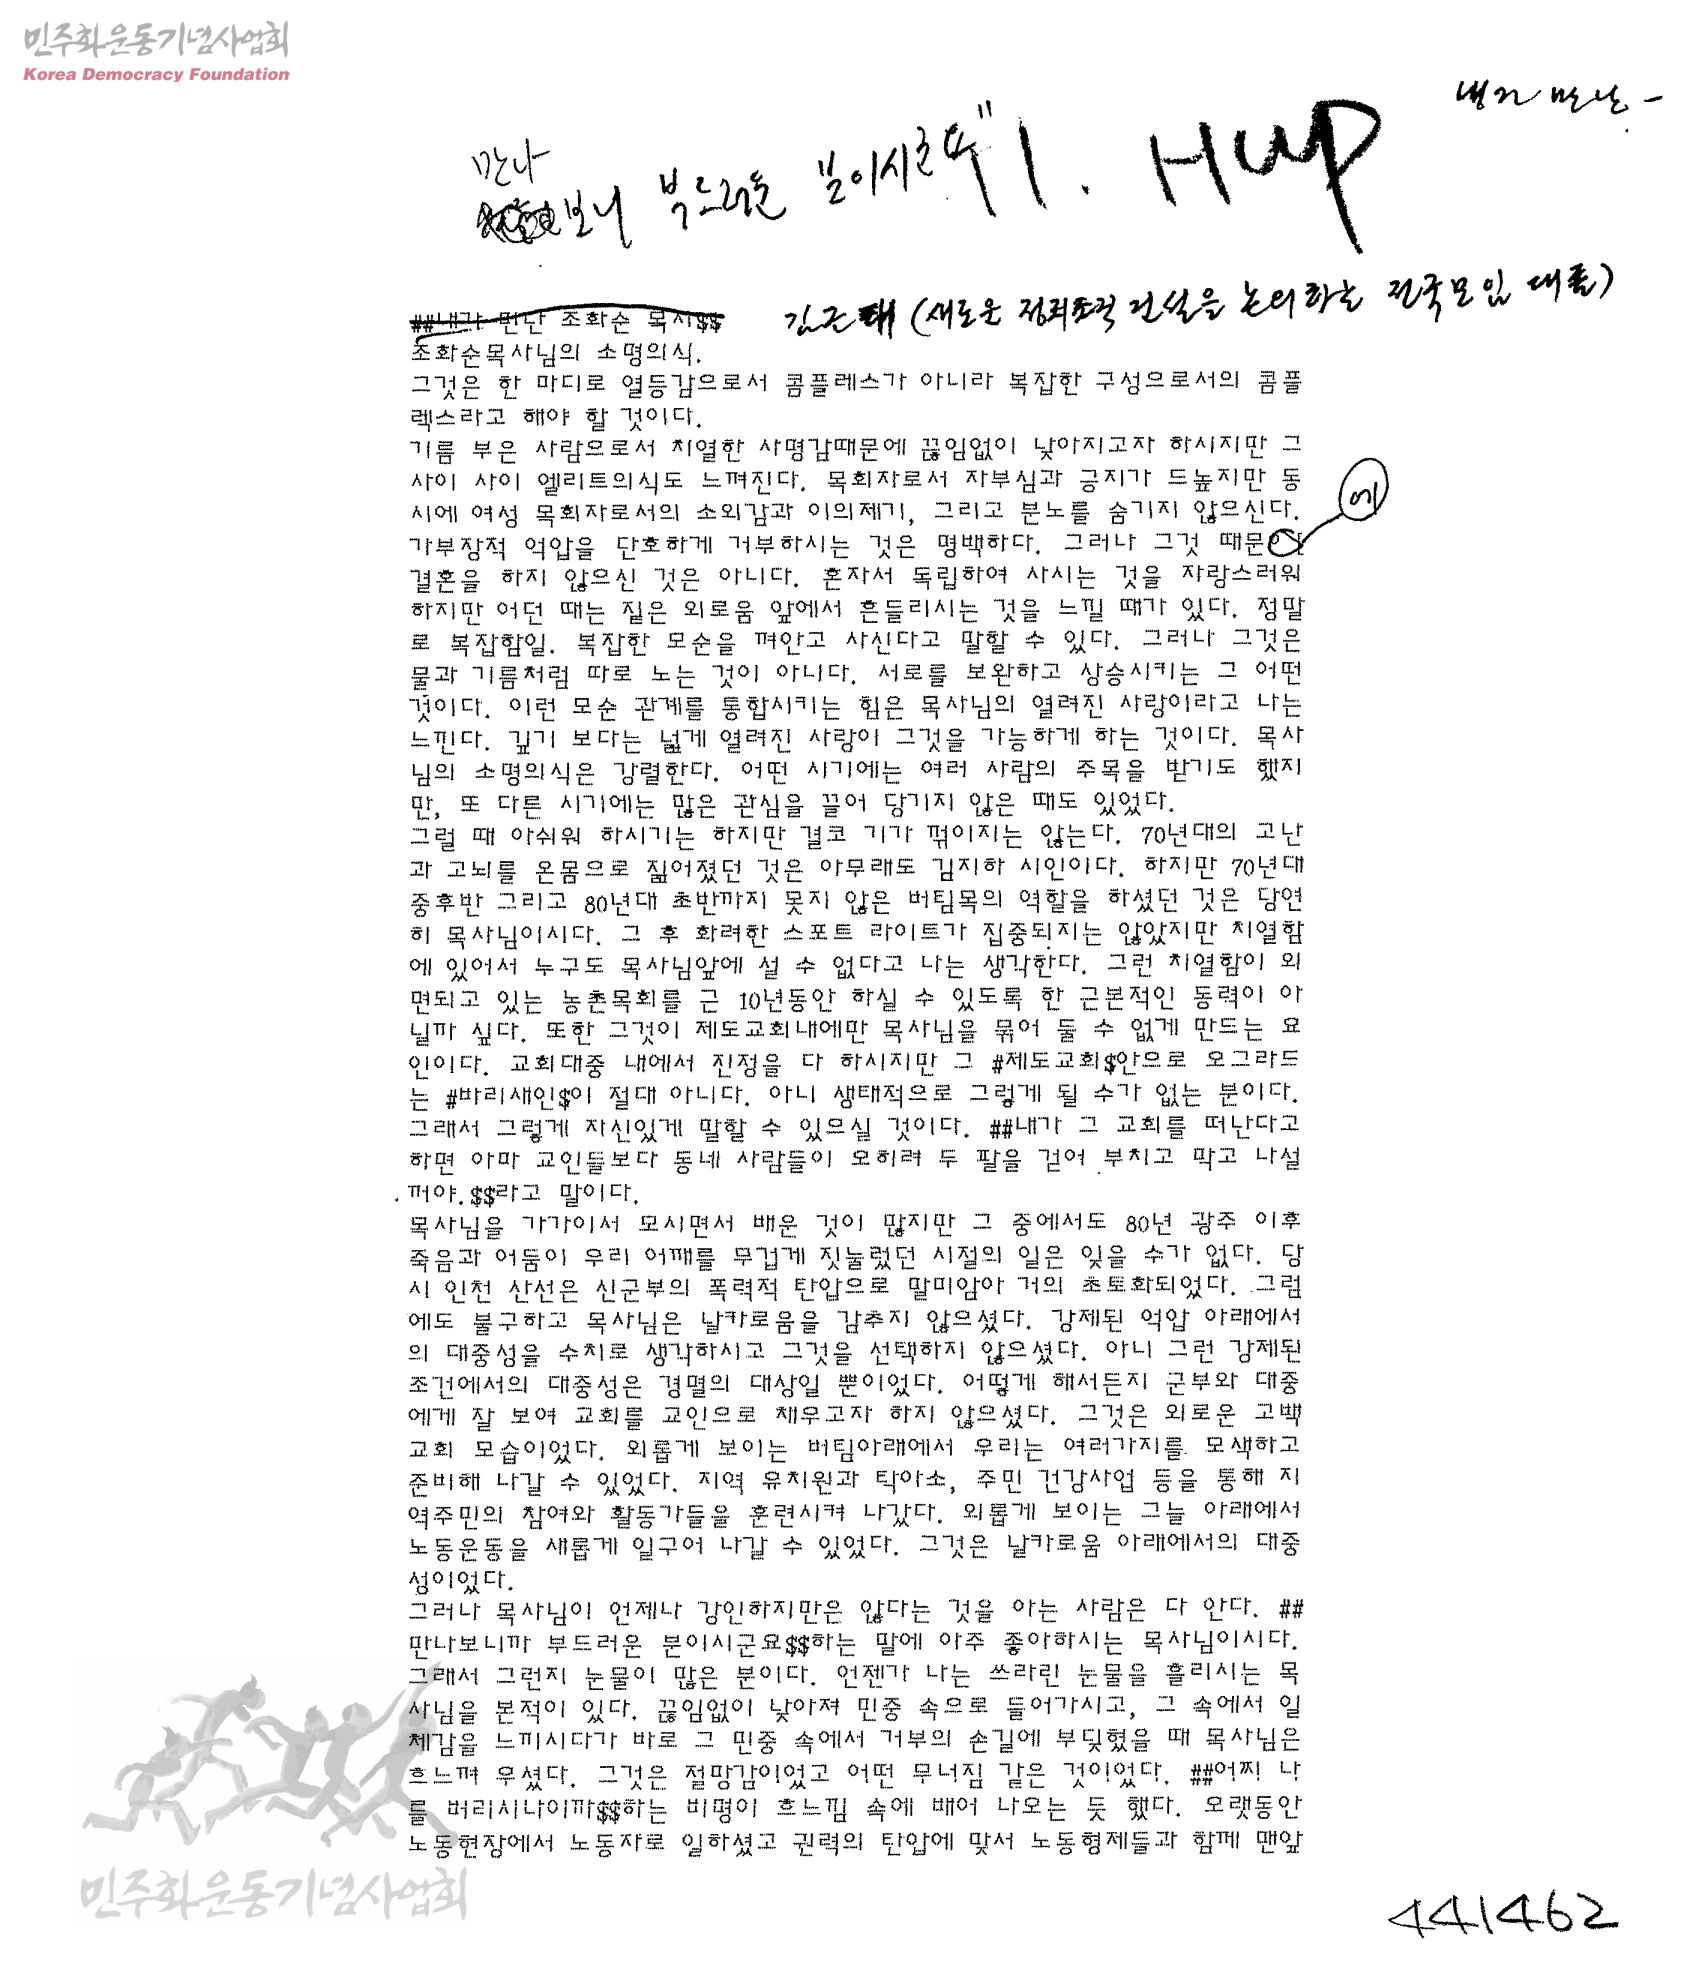 민주화운동기념사업회
Korea Democracy Foundation
만나
보니 부드러운 분이시군요" 1. HWP
##내가 만난 조화순 목사$$
김근태 (새로운 정치조직 건설을 논의하는 전국모임 대표)
조화순목사님의 소명의식.
그것은 한 마디로 열등감으로서 콤플레스가 아니라 복잡한 구성으로서의 콤플
렉스라고 해야 할 것이다.
기름 부은 사람으로서 치열한 사명감때문에 끊임없이 낮아지고자 하시지만 그
사이 사이 엘리트의식도 느껴진다. 목회자로서 자부심과 긍지가 드높지만 동
시에 여성 목회자로서의 소외감과 이의제기, 그리고 분노를 숨기지 않으신다.
에
가부장적 억압을 단호하게 거부하시는 것은 명백하다. 그러나 그것 때문
결혼을 하지 않으신 것은 아니다. 혼자서 독립하여 사시는 것을 자랑스러워
하지만 어떤 때는 짙은 외로움 앞에서 흔들리시는 것을 느낄 때가 있다. 정말
로 복잡함일. 복잡한 모순을 껴안고 사신다고 말할 수 있다. 그러나 그것은
물과 기름처럼 따로 노는 것이 아니다. 서로를 보완하고 상승시키는 그 어떤
것이다. 이런 모순 관계를 통합시키는 힘은 목사님의 열려진 사랑이라고 나는
느낀다. 깊기 보다는 넓게 열려진 사랑이 그것을 가능하게 하는 것이다. 목사
님의 소명의식은 강렬한다. 어떤 시기에는 여러 사람의 주목을 받기도 했지
만, 또 다른 시기에는 많은 관심을 끌어 당기지 않은 때도 있었다.
그럴 때 아쉬워 하시기는 하지만 결코 기가 꺾이지는 않는다. 70년대의 고난
과 고뇌를 온몸으로 짊어졌던 것은 아무래도 김지하 시인이다. 하지만 70년대
중후반 그리고 80년대 초반까지 못지 않은 버팀목의 역할을 하셨던 것은 당연
히 목사님이시다. 그 후 화려한 스포트 라이트가 집중되지는 않았지만 치열함
에 있어서 누구도 목사님앞에 설 수 없다고 나는 생각한다. 그런 치열함이 외
면되고 있는 농촌목회를 근 10년동안 하실 수 있도록 한 근본적인 동력이 아
닐까 싶다. 또한 그것이 제도교회내에만 목사님을 묶어 둘 수 없게 만드는 요
인이다. 교회대중 내에서 진정을 다 하시지만 그 #제도교회$안으로 오그라드
는 #바리새인$이 절대 아니다. 아니 생태적으로 그렇게 될 수가 없는 분이다.
그래서 그렇게 자신있게 말할 수 있으실 것이다. ##내가 그 교회를 떠난다고
하면 아마 교인들보다 동네 사람들이 오히려 두 팔을 걷어 부치고 막고 나설
꺼야.$$라고 말이다.
목사님을 가까이서 모시면서 배운 것이 많지만 그 중에서도 80년 광주 이후
죽음과 어둠이 우리 어깨를 무겁게 짓눌렀던 시절의 일은 잊을 수가 없다. 당
시 인천 산선은 신군부의 폭력적 탄압으로 말미암아 거의 초토화되었다. 그럼
에도 불구하고 목사님은 날카로움을 감추지 않으셨다. 강제된 억압 아래에서
의 대중성을 수치로 생각하시고 그것을 선택하지 않으셨다. 아니 그런 강제된
조건에서의 대중성은 경멸의 대상일 뿐이었다. 어떻게 해서든지 군부와 대중
에게 잘 보여 교회를 교인으로 채우고자 하지 않으셨다. 그것은 외로운 고백
교회 모습이었다. 외롭게 보이는 버팀아래에서 우리는 여러가지를 모색하고
준비해 나갈 수 있었다. 지역 유치원과 탁아소, 주민 건강사업 등을 통해 지
역주민의 참여와 활동가들을 훈련시켜 나갔다. 외롭게 보이는 그늘 아래에서
노동운동을 새롭게 일구어 나갈 수 있었다. 그것은 날카로움 아래에서의 대중
성이었다.
그러나 목사님이 언제나 강인하지만은 않다는 것을 아는 사람은 다 안다. ##
만나보니까 부드러운 분이시군요$$하는 말에 아주 좋아하시는 목사님이시다.
그래서 그런지 눈물이 많은 분이다. 언젠가 나는 쓰라린 눈물을 흘리시는 목
사님을 본적이 있다. 끊임없이 낮아져 민중 속으로 들어가시고, 그 속에서 일
체감을 느끼시다가 바로 그 민중 속에서 거부의 손길에 부딪혔을 때 목사님은
흐느껴 우셨다. 그것은 절망감이었고 어떤 무너짐 같은 것이었다. ##어찌 나
를 버리시나이까$$하는 비명이 흐느낌 속에 배어 나오는 듯 했다. 오랫동안
노동현장에서 노동자로 일하셨고 권력의 탄압에 맞서 노동형제들과 함께 맨앞
민주화운동기념사업회
441462